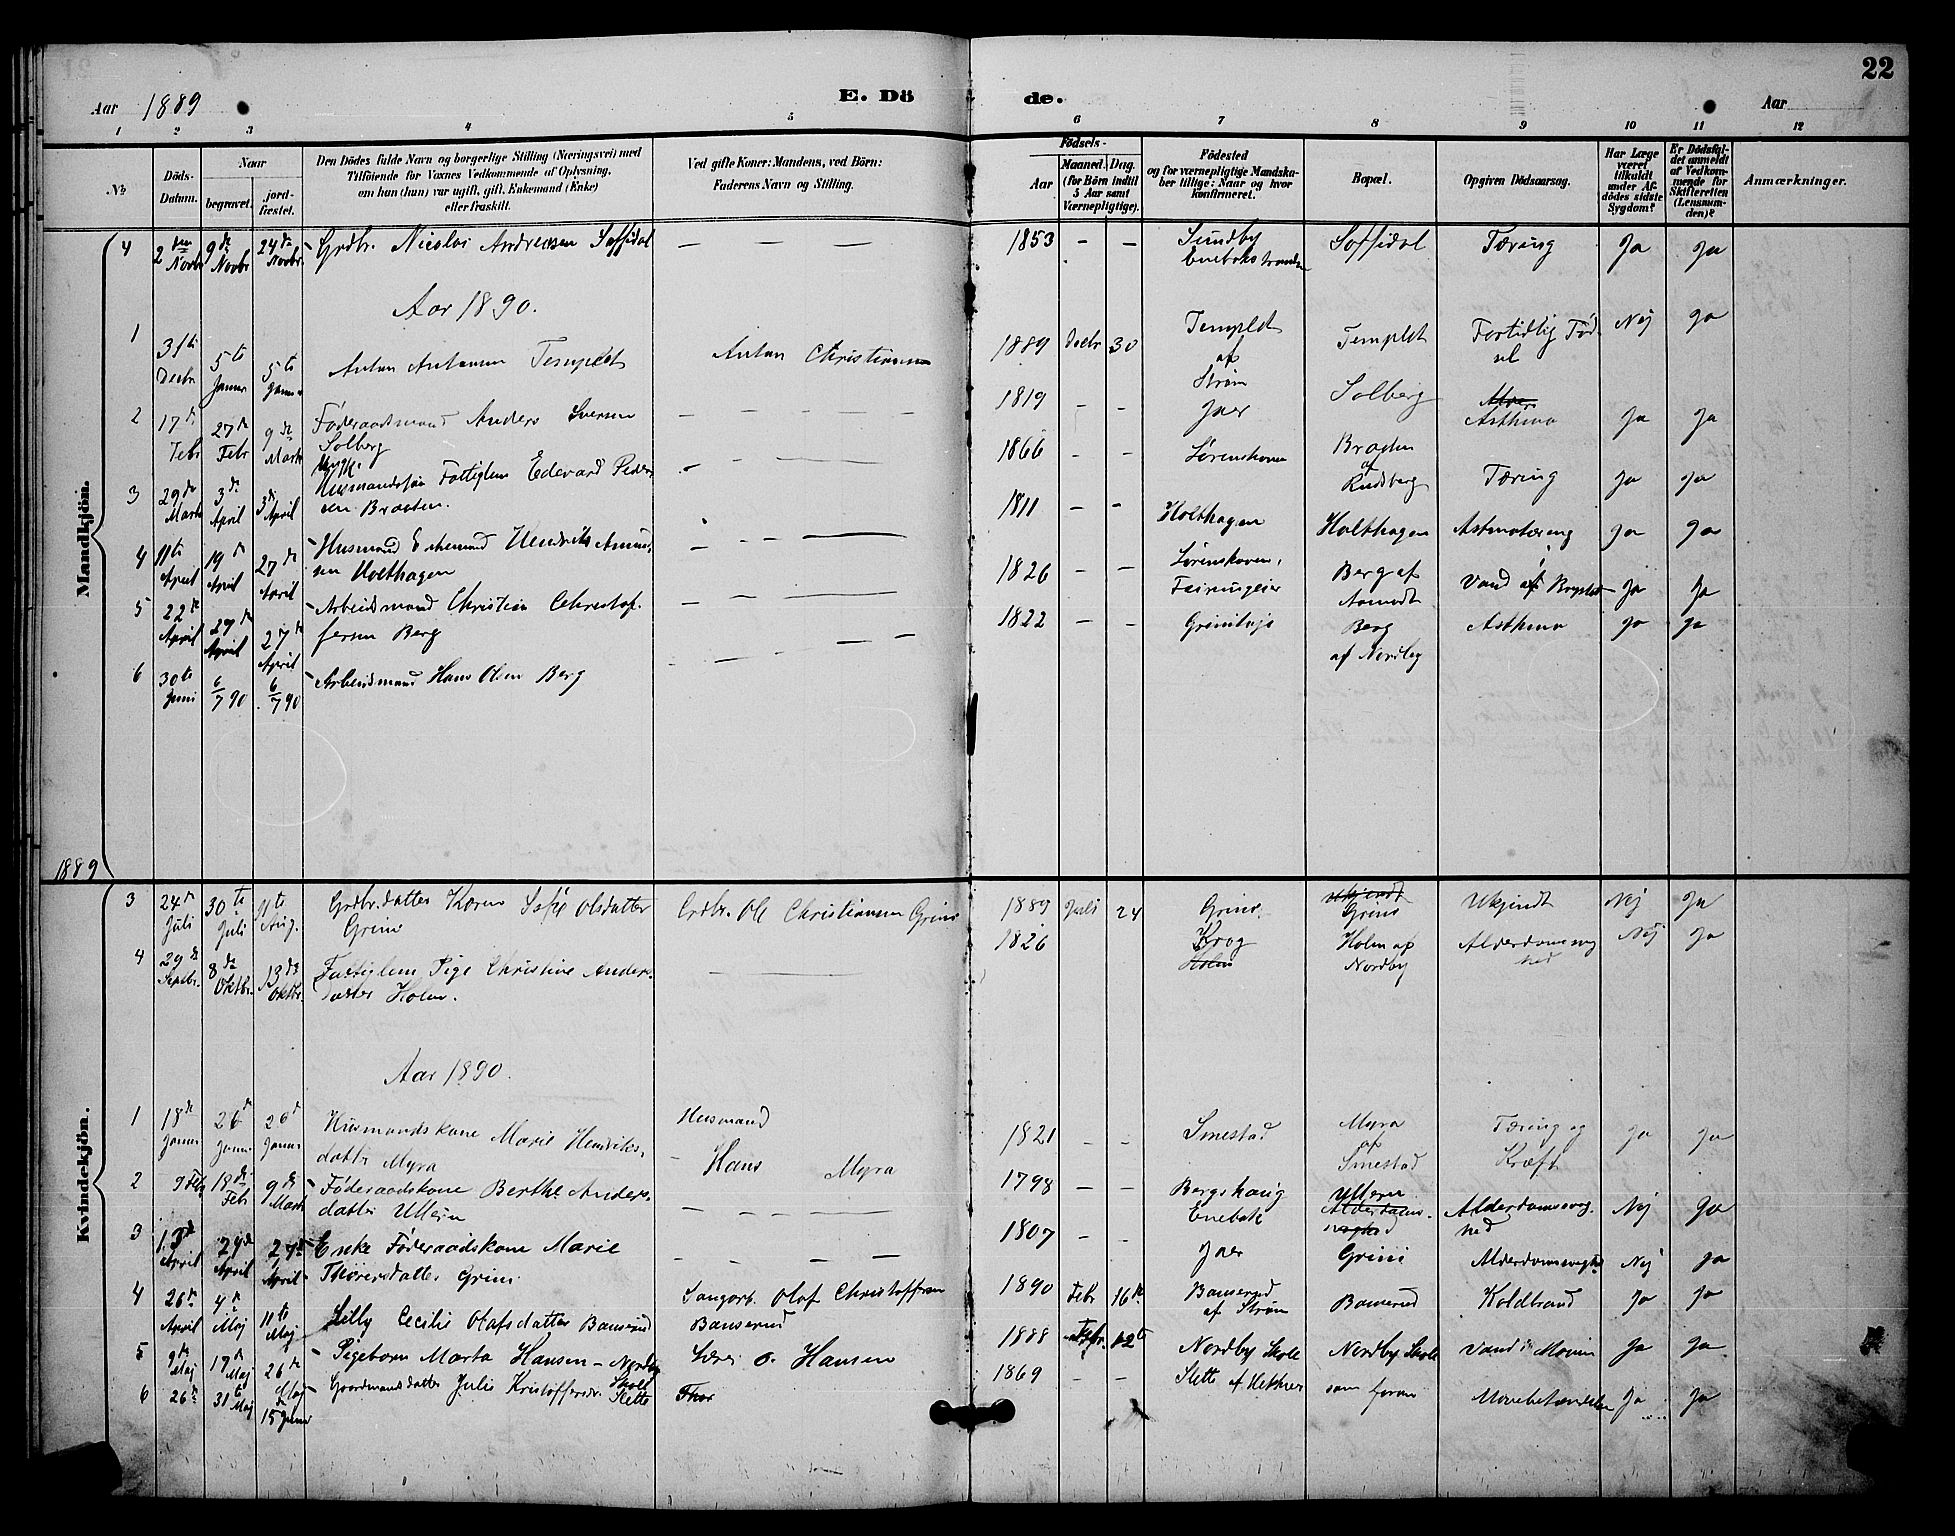 22
Aar 1889
E. Dö de.
Aar
1 2 3 4 5 6 7 8 9 10 11 12
No
Döds-Datum.
Naar
begravet.
jordfæstet.
Den Dödes fulde Navn og borgerlige Stilling (Næringsvei) med
Tilföiende for Voxnes Vedkommende af Oplysning,
om han (hun) var ugift, gift, Enkemand (Enke)
eller fraskilt.
Ved gifte Koner: Mandens, ved Börn:
Faderens Navn og Stilling.
Födsels-
Aar
Maaned. Dag.
(for Börn indtil
5 Aar samt
Værnepligtige).
Födested
og for værnepligtige Mandskaber
tillige: Naar og hvor
konfirmeret.
Bopæl.
Opgiven Dödsaarsag.
Har Læge
været
tilkaldt
under Afdödes
sidste
Sygdom?
Er Dödsfaldet
anmeldt
af Vedkommende
for
Skifteretten
(Lensmanden)?
Anmærkninger.
Mandkjön.
4 2den Novbr 9de Novbr 24de Novbr. Grdbr. Nicolai Andreasen Soffidal — — — 1853 - - Sundby Enebakstranden Soffidal Tæring Ja Ja
Aar 1890.
1 31te Decbr 5te Januar 5te Januar Anton Antonsen Templet Anton Christiansen 1889 Decbr 30 Templet af Strøm Templet Fortidlig Fødsel Nej Ja
2 17de Febr 27de Febr 9de Marts Føderaadsmand Anders Iversen Solberg — — — — 1819 - - Jaer Solberg Asthma Ja Ja
3 29de Marts 3de April 3de April Husmandssøn Fattiglem Edevard Pedersen Braaten. — — — 1866 - - Sørenskoven Braaten af Rudsberg Tæring Ja Ja
4 11te April 19de April 27de April Husmand Enkemand Hendrik Amundsen Holthagen — — — 1811 - - Holthagen Holthagen Astmatæring Ja Ja
5 22de April 27de April 27de April Arbeidsmand Christian Christoffersen Berg — — — 1826 - - Sørenskoven, Berg af Vand Brystet Ja Ja
6 30te Juni 6/7 90 6/7 90 Arbeidsmand Hans Olsen Berg — — — 1822 - - Berg af Nordby Asthma Ja Ja
1889
Kvindekjön.
3 24de Juli 30te Juli 11te Aug. Grdbr.datter Karen Sofie Olsdatter Grini Grdbr. Ole Christiansen Grini 1889 Juli 24 Grini Ukjendt Grini Ukjendt Nej Ja
4 29de Septbr. 8de Oktbr. 13de Oktbr. Fattiglem Pige Christine Andersdatter Holm. — — 1826 Krog Holm Holm af Nordby Alderdomssvaghed Nej Ja
Aar 1890.
1 18de Januar 26de Januar 26de Januar Husmandskone Marie Hendriksdatter Myra Husmand Hans Myra 1821 - - Smestad Myra af Smestad Tæring og Kræft Ja Ja
2 9 Febr 18de Febr 9de Marts Føderaadskone Berthe Andersdatter Ullern — — — 1798 - - Bergskaug Enebak Ullern Alderdomssvaghed Alderdomssvaghed Nej Ja
3 13de April 27de April 27de April Enke Føderaadskone Marie Thoresdatter Grini — — — 1807 - - Jaer Grini Alderdomssvaghed Nej Ja
4 26de April 4de Maj 11te Maj Lilly Cecilie Olafsdatter Banserud Olaf Christoffersen Banserud 1890 Febr 16de Banserud af Strøm Banserud Koldbrand Ja Ja
5 9de Maj 17de Maj 26de Maj Pigebarn Marta Hansen - Nordby Skole Lærer O. Hansen 1888 Febr. 12te Nordby Skole Nordby Skole Vand i Ja Ja
6 26de 31te Maj 15 Juni Gaardmandsdatter Julie Kristoffersdr. Slette Thor 1869 - - Slette af som foran Mavebetændelse Ja Ja